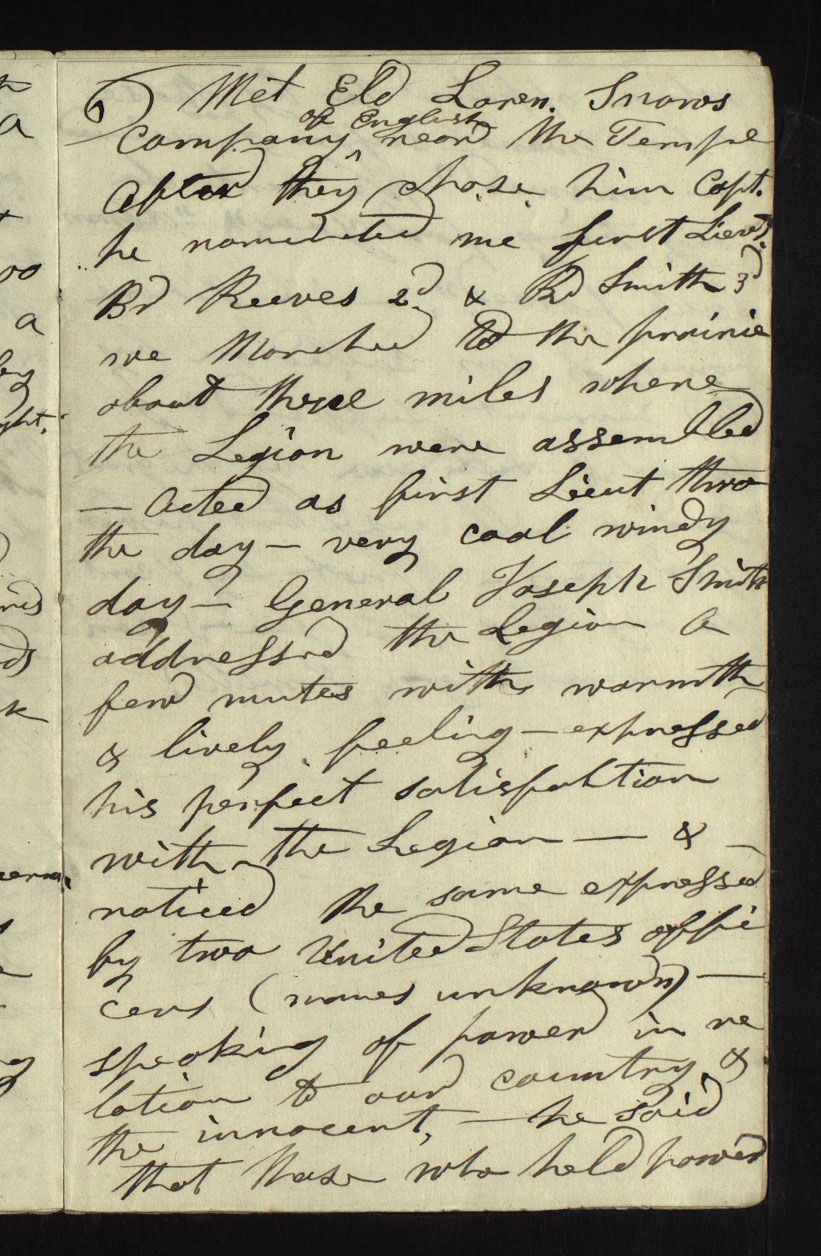 6 Met Eld Loren. Snows
of English
company near the Temple
after they chose him Capt.
he nominated me first Lieut.
Br Reeves 2d & Rd Smith 3d
we Marched to the prairie
about three miles where
the Legion were assembled
— acted as first Lieut thro
the day — very cool windy
day — General Joseph Smith
addressed the Legion a
few mutes with warmth
& lively feeling — expressed
his perfect satisfaltion
with the Legion — & —
noticed the same expressed
by two United States offi
cers (names unknown) —
speaking of power in re
lation to our country &
the innocent, — he said
that those who held power